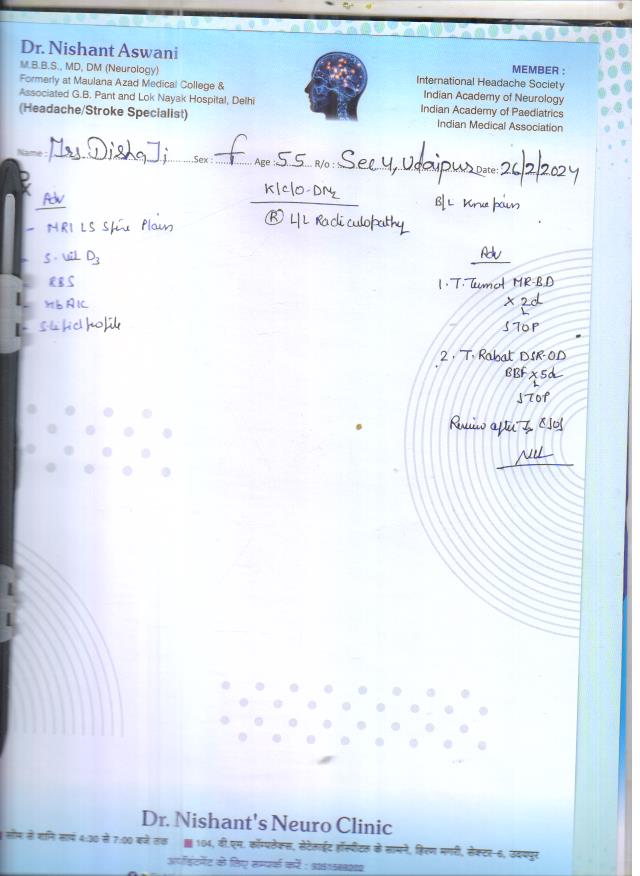 Dr. Nishant Aswani
M.B.B.S., MD, DM (Neurology)
Formerly at Maulana Azad Medical College &
Associated G.B. Pant and Lok Nayak Hospital, Delhi
(Headache/Stroke Specialist)
MEMBER :
International Headache Society
Indian Academy of Neurology
Indian Academy of Paediatrics
Indian Medical Association
Name : Mrs. Disha Ji Sex : f Age : 55 R/o : Sec 4, Udaipur Date : 26/2/2024
Adv
- MRI LS Spine Plain
- S. Vit D3
- RBS
- HbA1C
- S. Lipid profile
K/C/O - DM2
(R) L/L Radiculopathy
B/L Knee pain
Adv
1. T. Tumol MR-BD
x 2d
STOP
2. T. Rabat DSR-OD
BBF x 5d
STOP
Review after
Dr. Nishant's Neuro Clinic
सोम से शनि सायं 4:30 से 7:00 बजे तक 104, वी.एम. कॉम्पलेक्स, सेटेलाईट हॉस्पीटल के सामने, हिरण मगरी, सेक्टर-6, उदयपुर
अपॉइंटमेंट के लिए सम्पर्क करें :